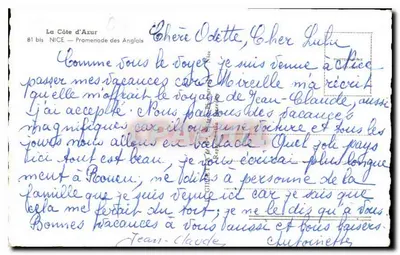 La Côte d'Azur
81 bis NICE — Promenade des Anglais
Chère Odette, Cher Lulu
Comme vous le voyez je suis venue à Nice
passer mes vacances car Mireille m'a écrit
qu'elle m'offrait le voyage de Jean-Claude, aussi
j'ai accepté. Nous passons des vacances
magnifiques car ils ont une voiture et tous les
jours nous allons en ballade. Quel joli pays
ici tout est beau, je vous écrirai plus longue
ment à Rouen, ne dites à personne de la
famille que je suis venue ici car je sais que
cela me ferait du tort, je ne le dis qu'à vous
Bonnes vacances à vous aussi et bons baisers
Jean-Claude Antoinette